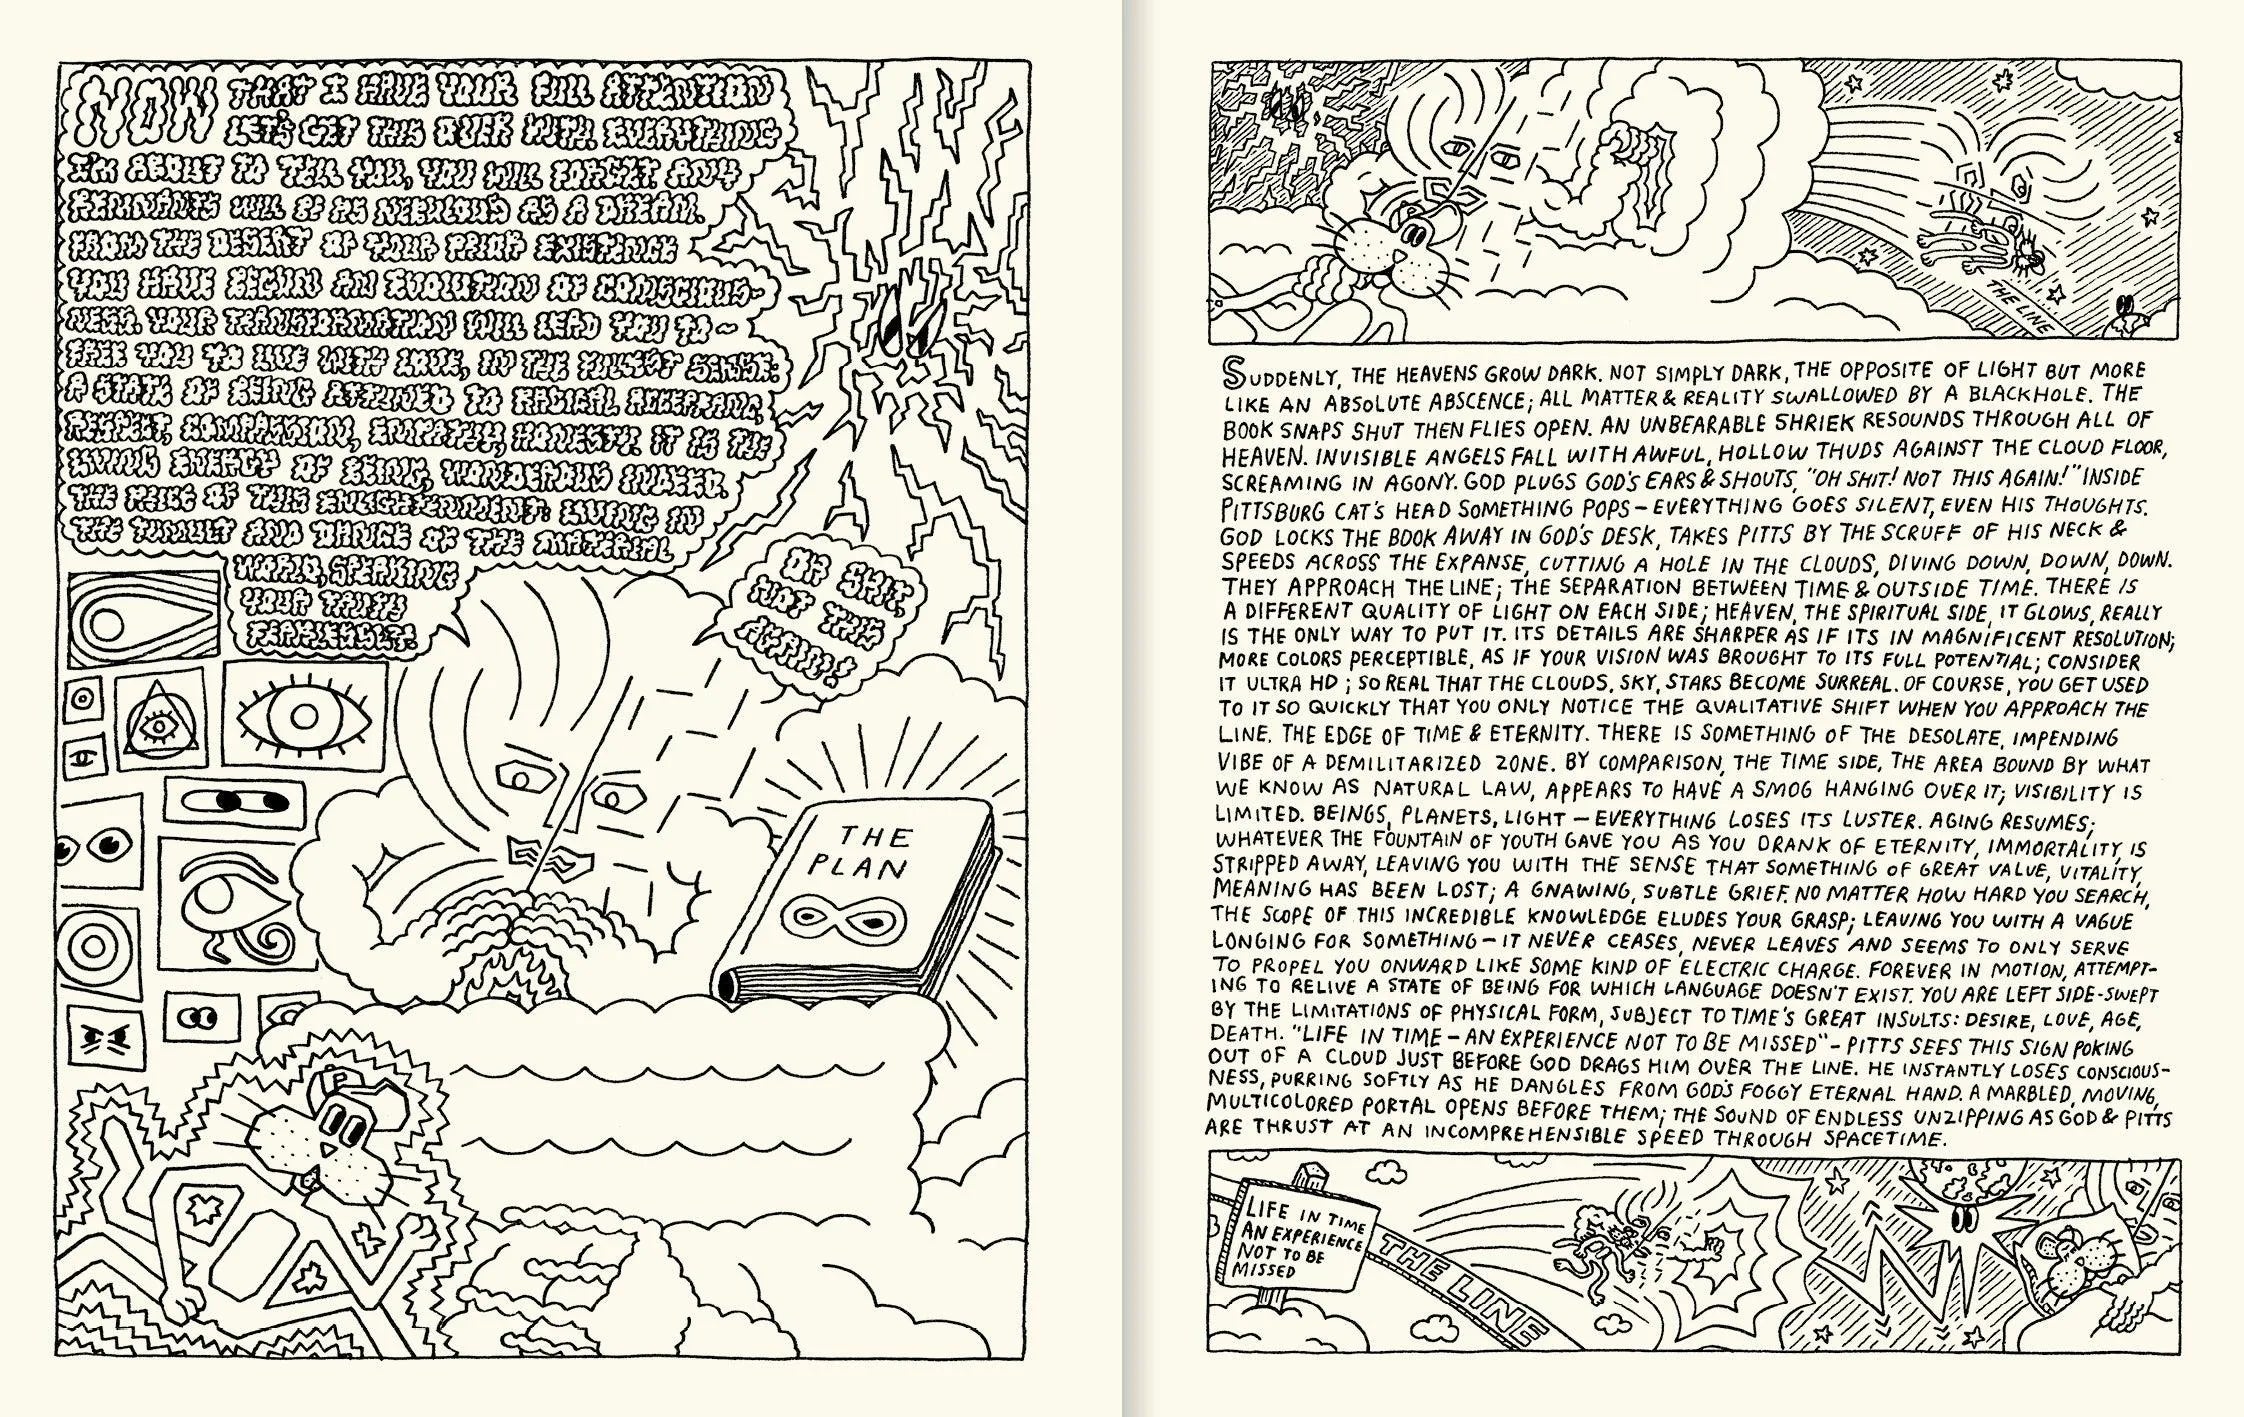 NOW THAT I HAVE YOUR FULL ATTENTION
LET'S GET THIS OVER WITH. EVERYTHING
I'M ABOUT TO TELL YOU, YOU WILL FORGET. ANY
REMNANTS WILL BE AS NEBULOUS AS A DREAM.
FROM THE DESERT OF YOUR PRIOR EXISTENCE
YOU HAVE BEGUN AN EVOLUTION OF CONSCIOUS-
NESS. YOUR TRANSFORMATION WILL LEAD YOU TO ~
FREE YOU TO LIVE WITH LOVE, IN THE FULLEST SENSE:
A STATE OF BEING ATTUNED TO RADICAL ACCEPTANCE,
RESPECT, COMPASSION, EMPATHY, HONESTY. IT IS THE
LIVING ENERGY OF BEING, WONDEROUS INDEED.
THE PRICE OF THIS ENLIGHTENMENT: LIVING IN
THE TUMULT AND DANCE OF THE MATERIAL
WORLD, SPEAKING
YOUR TRUTH
FEARLESSLY.
OH SHIT,
NOT THIS
AGAIN!
THE
PLAN
P
THE LINE
SUDDENLY, THE HEAVENS GROW DARK. NOT SIMPLY DARK, THE OPPOSITE OF LIGHT BUT MORE
LIKE AN ABSOLUTE ABSCENCE; ALL MATTER & REALITY SWALLOWED BY A BLACKHOLE. THE
BOOK SNAPS SHUT THEN FLIES OPEN. AN UNBEARABLE SHRIEK RESOUNDS THROUGH ALL OF
HEAVEN. INVISIBLE ANGELS FALL WITH AWFUL, HOLLOW THUDS AGAINST THE CLOUD FLOOR,
SCREAMING IN AGONY. GOD PLUGS GOD'S EARS & SHOUTS, "OH SHIT! NOT THIS AGAIN!" INSIDE
PITTSBURG CAT'S HEAD SOMETHING POPS – EVERYTHING GOES SILENT, EVEN HIS THOUGHTS.
GOD LOCKS THE BOOK AWAY IN GOD'S DESK, TAKES PITTS BY THE SCRUFF OF HIS NECK &
SPEEDS ACROSS THE EXPANSE, CUTTING A HOLE IN THE CLOUDS, DIVING DOWN, DOWN, DOWN.
THEY APPROACH THE LINE; THE SEPARATION BETWEEN TIME & OUTSIDE TIME. THERE IS
A DIFFERENT QUALITY OF LIGHT ON EACH SIDE; HEAVEN, THE SPIRITUAL SIDE, IT GLOWS, REALLY
IS THE ONLY WAY TO PUT IT. ITS DETAILS ARE SHARPER AS IF ITS IN MAGNIFICENT RESOLUTION;
MORE COLORS PERCEPTIBLE, AS IF YOUR VISION WAS BROUGHT TO ITS FULL POTENTIAL; CONSIDER
IT ULTRA HD; SO REAL THAT THE CLOUDS, SKY, STARS BECOME SURREAL. OF COURSE, YOU GET USED
TO IT SO QUICKLY THAT YOU ONLY NOTICE THE QUALITATIVE SHIFT WHEN YOU APPROACH THE
LINE. THE EDGE OF TIME & ETERNITY. THERE IS SOMETHING OF THE DESOLATE, IMPENDING
VIBE OF A DEMILITARIZED ZONE. BY COMPARISON, THE TIME SIDE, THE AREA BOUND BY WHAT
WE KNOW AS NATURAL LAW, APPEARS TO HAVE A SMOG HANGING OVER IT; VISIBILITY IS
LIMITED. BEINGS, PLANETS, LIGHT – EVERYTHING LOSES ITS LUSTER. AGING RESUMES;
WHATEVER THE FOUNTAIN OF YOUTH GAVE YOU AS YOU DRANK OF ETERNITY, IMMORTALITY, IS
STRIPPED AWAY, LEAVING YOU WITH THE SENSE THAT SOMETHING OF GREAT VALUE, VITALITY,
MEANING HAS BEEN LOST; A GNAWING, SUBTLE GRIEF. NO MATTER HOW HARD YOU SEARCH,
THE SCOPE OF THIS INCREDIBLE KNOWLEDGE ELUDES YOUR GRASP; LEAVING YOU WITH A VAGUE
LONGING FOR SOMETHING – IT NEVER CEASES, NEVER LEAVES AND SEEMS TO ONLY SERVE
TO PROPEL YOU ONWARD LIKE SOME KIND OF ELECTRIC CHARGE. FOREVER IN MOTION, ATTEMPT-
ING TO RELIVE A STATE OF BEING FOR WHICH LANGUAGE DOESN'T EXIST. YOU ARE LEFT SIDE-SWEPT
BY THE LIMITATIONS OF PHYSICAL FORM, SUBJECT TO TIME'S GREAT INSULTS: DESIRE, LOVE, AGE,
DEATH. "LIFE IN TIME – AN EXPERIENCE NOT TO BE MISSED" – PITTS SEES THIS SIGN POKING
OUT OF A CLOUD JUST BEFORE GOD DRAGS HIM OVER THE LINE. HE INSTANTLY LOSES CONSCIOUS-
NESS, PURRING SOFTLY AS HE DANGLES FROM GOD'S FOGGY ETERNAL HAND. A MARBLED, MOVING,
MULTICOLORED PORTAL OPENS BEFORE THEM; THE SOUND OF ENDLESS UNZIPPING AS GOD & PITTS
ARE THRUST AT AN INCOMPREHENSIBLE SPEED THROUGH SPACETIME.
LIFE IN TIME
AN EXPERIENCE
NOT TO BE
MISSED
THE LINE